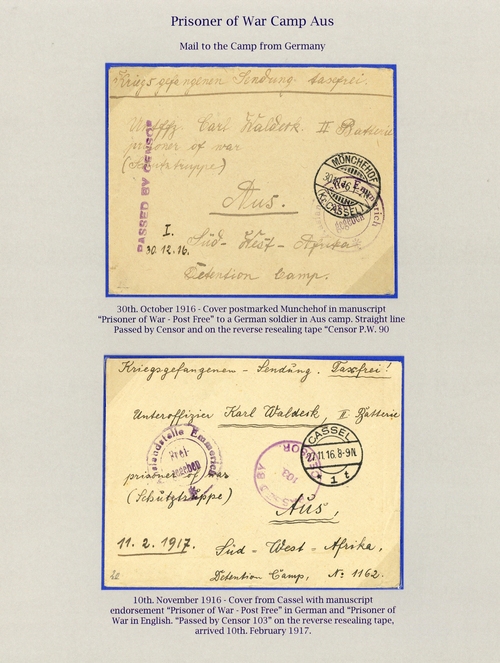 Prisoner of War Camp Aus
Mail to the Camp from Germany
Kriegsgefangenen Sendung. taxfrei.
Untffz. Carl Waldeck. II Batterie
prisoner of war
(Schutztruppe)
Aus.
PASSED BY CENSOR
MÜNCHEHOF
(Kr. CASSEL)
I.
30.12.16.
Süd-West-Afrika
Detention Camp.
30th. October 1916 - Cover postmarked Munchehof in manuscript
"Prisoner of War - Post Free" to a German soldier in Aus camp. Straight line
Passed by Censor and on the reverse resealing tape "Censor P.W. 90
Kriegsgefangenen - Sendung. Taxfrei!
Unteroffizier Karl Waldeck, II Batterie
Auslandstelle Emmerich
Frei-
gegeben
CASSEL
11.16.8-9N
PASSED BY CENSOR
103
prisoner of war
(Schutztruppe)
Aus,
11.2.1917.
Süd-West-Afrika,
Detention Camp, No 1162.
10th. November 1916 - Cover from Cassel with manuscript
endorsement "Prisoner of War - Post Free" in German and "Prisoner of
War in English. "Passed by Censor 103" on the reverse resealing tape,
arrived 10th. February 1917.